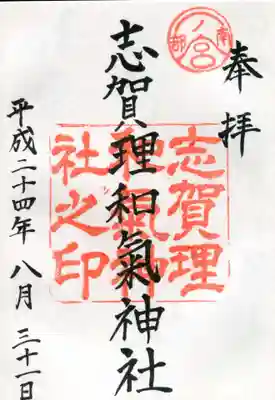 奉拝
南部一ノ宮
志賀理和氣神社
志賀理
和氣神
社之印
平成二十四年 八月 三十一日